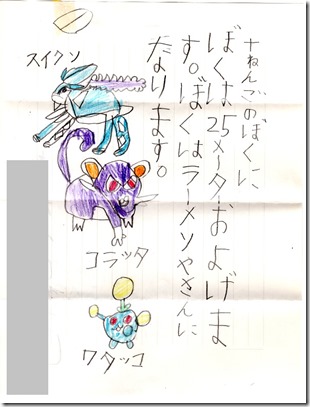 十ねんごのぼくに
ぼくは25メーターおよげま
す。ぼくはラーメンやさんに
なります。
スイクン
コラッタ
ワタッコ